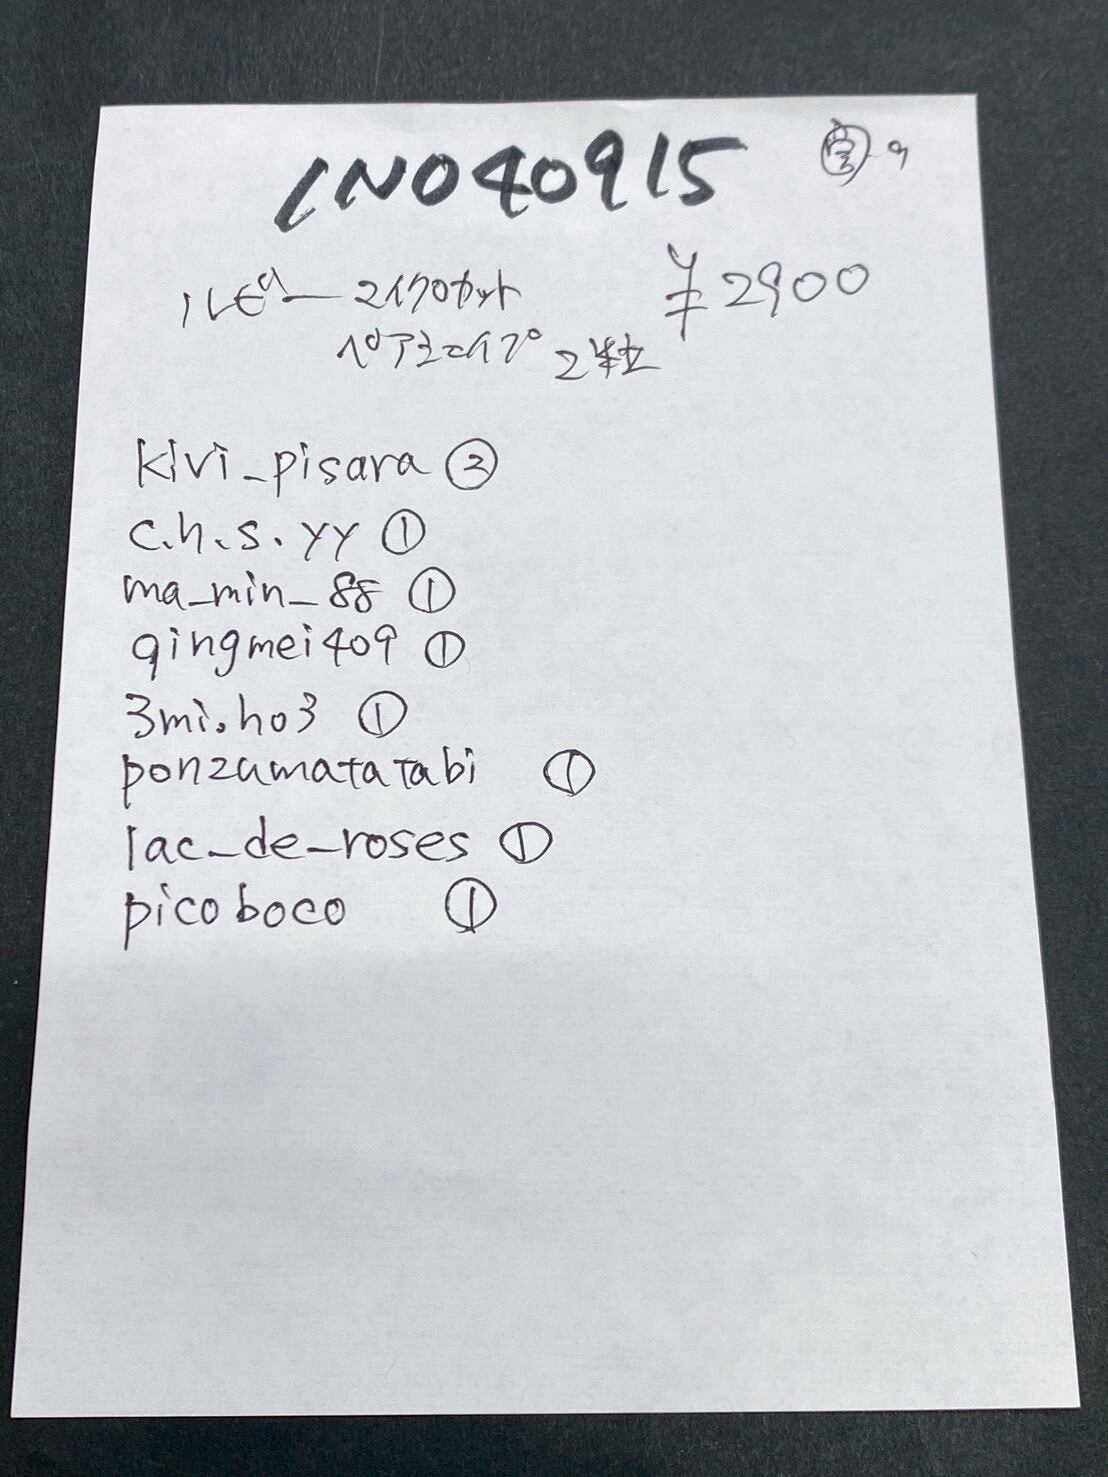 INO40915
ルビー マイクロカット ¥2900
ペアシェイプ 2粒
kivi_pisara ②
c.h.s.yy ①
ma_min_88 ①
qingmei409 ①
3mi.ho3 ①
ponzumatatabi ①
lac_de_roses ①
picoboco ①